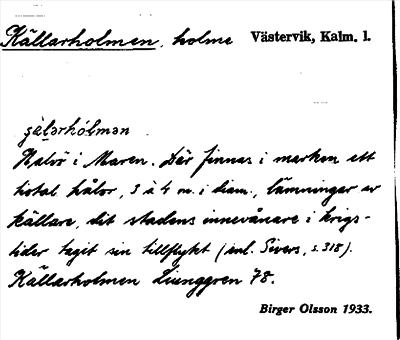 Källarholmen, holme Västervik, Kalm. l.
çälarhólmən
Halvö i Maren. Där finnas i marken ett
tiotal hålor, 3 à 4 m. i diam., lämningar av
källare, dit stadens innevånare i krigs-
tider tagit sin tillflykt (enl. Sivers, s. 318).
Källarholmen Ljunggren 78.
Birger Olsson 1933.